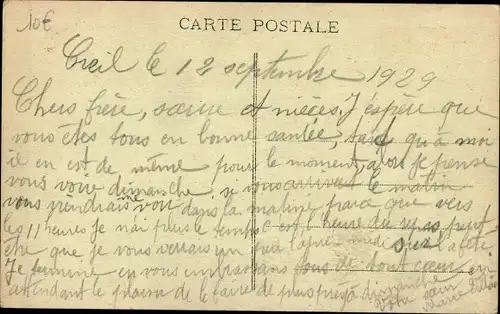 10€
CARTE POSTALE
Creil le 12 septembre 1929
Chers frère, sœur et nièces, J'éspère que
vous etes tous en bonne santée, qu'à moi
il en est de même pour le moment, alors je pense
vous voir dimanche, si vous arrivez le matin
vous viendrais voir dans la matiné parce que vers
les 11 heures je n'ai plus le temps c'est l'heure du repas peut
être que je vous verrais un peu l'après midi sur la fête
Je termine en vous embrassant tous de tout cœur, en
attendant le plaisir de le faire de plus près à dimanche
Votre sœur
Marie